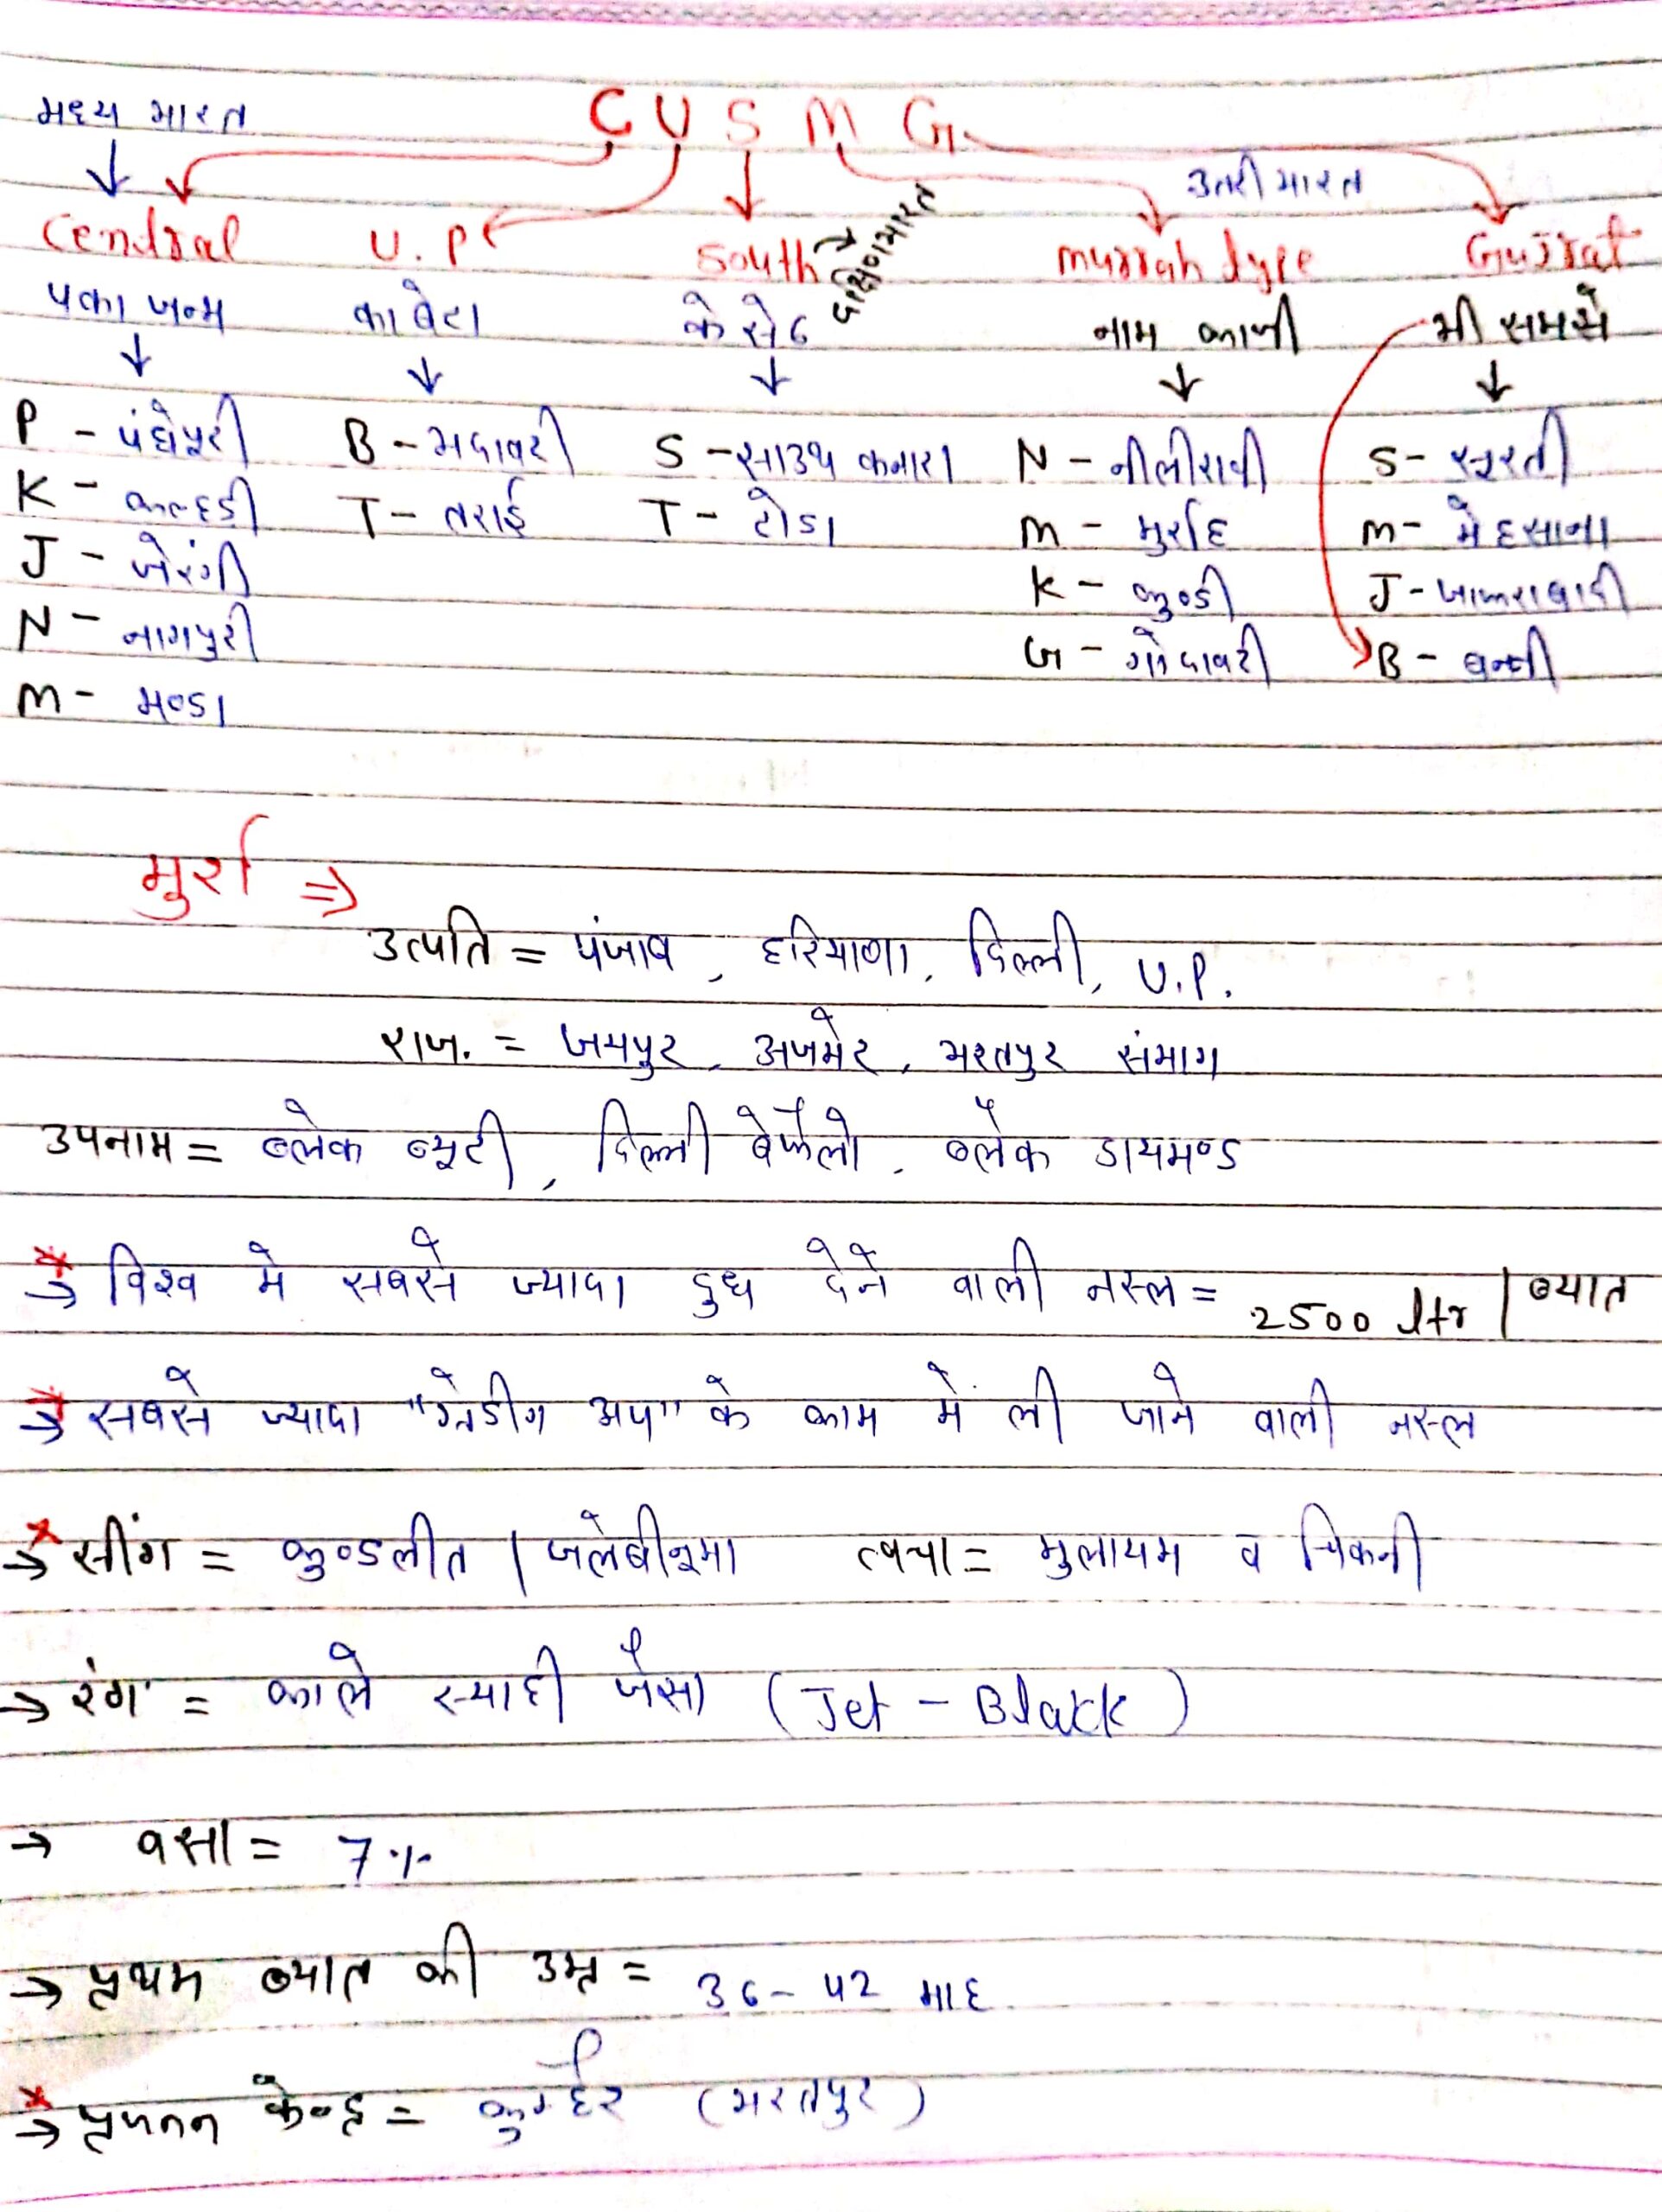 मध्य भारत C U S M G
उतरी भारत
Central U.P South दक्षिण भारत murrah type Gujrat
पका जन्म का बेटा के सेठ नाम काजी भी समसे
P - पंधेपुरी B - भदावरी S - साउथ कनारा N - नीलीरावी S - सूरती
K - कल्हडी T - तराई T - टोडा m - मुर्राह m - मेहसाना
J - जेरंगी K - कुण्डी J - जाफराबादी
N - नागपुरी G - गोदावरी B - बन्नी
m - मण्डा
मुर्रा ⇒
उत्पति = पंजाब, हरियाणा, दिल्ली, U.P.
राज. = जयपुर, अजमेर, भरतपुर संभाग
उपनाम = ब्लेक ब्यूटी, दिल्ली बेर्फेलो, ब्लैक डायमण्ड
* → विश्व मे सबसे ज्यादा दुध देने वाली नस्ल = 2500 ltr | ब्यात
* → सबसे ज्यादा "ग्रेडीग अप" के काम में ली जाने वाली नस्ल
* → सींग = कुण्डलीत | जलेबीनूमा त्वचा = मुलायम व चिकनी
→ रंग = काले स्याही जैसा (Jet - Black)
→ वसा = 7%
→ प्रथम ब्यात की उम्र = 36 - 42 माह
* → प्रजनन केन्द्र = कुम्हेर (भरतपुर)